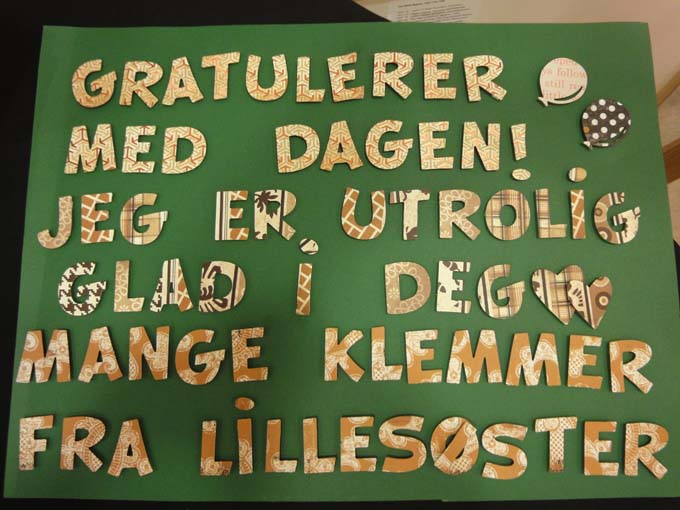 GRATULERER
MED DAGEN!
JEG ER UTROLiG
GLAD i DEG
MANGE KLEMMER
FRA LiLLESØSTER